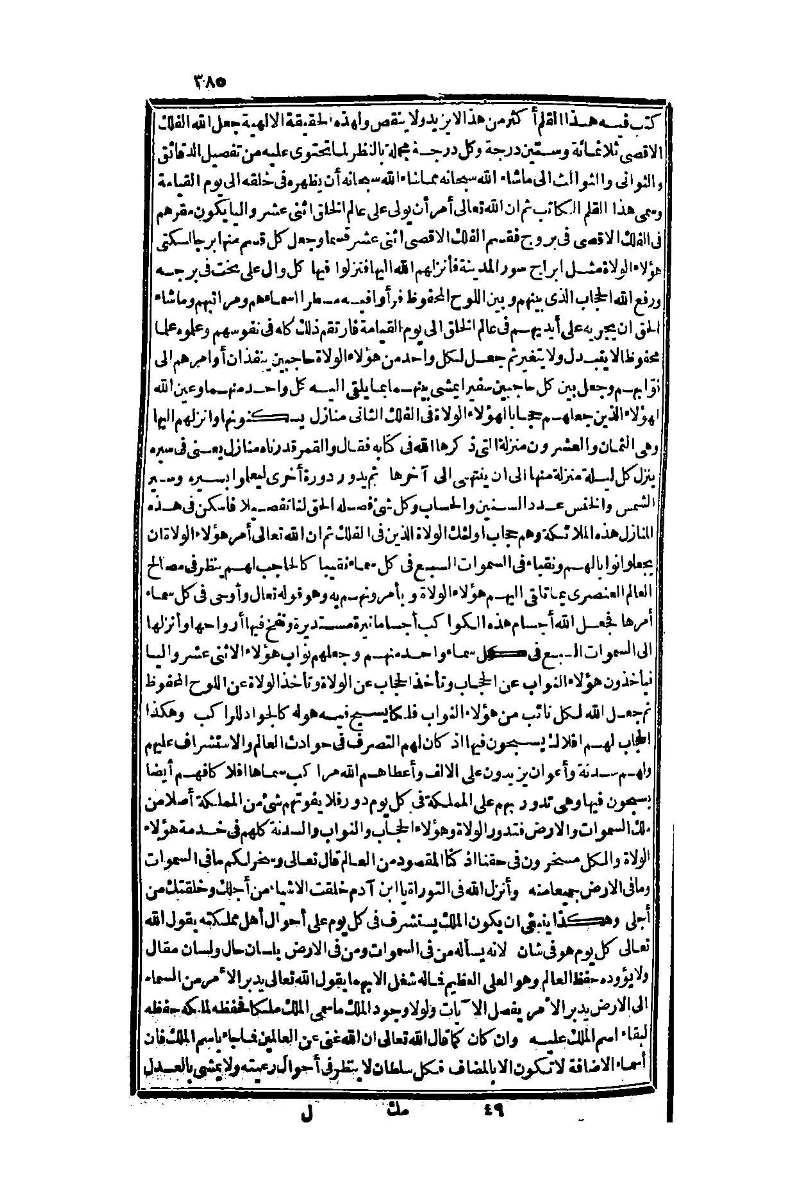 ٣٨٥
كتب فيه هذا القلم أكثر من هذا لا يزيد ولا ينقص ولهذه الحقيقة الالهية جعل الله الفلك
الاقصى ثلاثمائة وستين درجة وكل درجة مجملة بالنظر لما تحتوى عليه من تفصيل الدقائق
والثوانى والثوالث الى ماشاء الله سبحانه مماشاء الله سبحانه أن يظهره فى خلقه الى يوم القيامة
وسمى هذا القلم الكاتب ثم ان الله تعالى أمر أن يولى على عالم الخلق اثنى عشر واليا يكون مقرهم
فى الفلك الاقصى فى بروج فقسم الفلك الاقصى اثنى عشر قسما وجعل كل قسم منها برجا لسكنى
هؤلاء الولاة مثل ابراج سور المدينة فأنزلهم الله اليها فنزلوا فيها كل وال على تخت فى برجه
ورفع الله الحجاب الذى بينهم وبين اللوح المحفوظ فرأوا فيه مسطرا اسماءهم ومراتبهم وماشاء
الحق ان يجريه على أيديهم فى عالم الخلق الى يوم القيامة فارتقم ذلك كله فى نفوسهم وعلموه علما
محفوظا لا يتبدل ولا يتغير ثم جعل لكل واحد من هؤلاء الولاة حاجبين ينفذان أوامرهم الى
نوابهم وجعل بين كل حاجبين سفيرا يمشى بينهما بما يلقى اليه كل واحد منهما وعين الله
لهؤلاء الذين جعلهم حجابا لهؤلاء الولاة فى الفلك الثانى منازل يسكنونها وانزلهم اليها
وهى الثمان والعشرون منزلة التى ذكرها الله فى كتابه فقال والقمر قدرناه منازل يعنى فى سيره
ينزل كل ليلة منزلة منها الى ان ينتهى الى آخرها ثم يدور دورة أخرى ليعلموا بسيره وسير
الشمس والخنس عدد السنين والحساب وكل شئ فصله الحق لنا تفصيلا فاسكن فى هذه
المنازل هذه الملائكة وهم حجاب أولئك الولاة الذين فى الفلك ثم ان الله تعالى أمر هؤلاء الولاة ان
يجعلوا نوابا لهم ونقباء فى السموات السبع فى كل سماء نقيبا كالحاجب لهم ينظر فى مصالح
العالم العنصرى بما تلقى اليهم هؤلاء الولاة و يأمرونهم به وهو قوله تعالى وأوحى فى كل سماء
أمرها فجعل الله أجسام هذه الكواكب أجساما نيرة مستديرة ونفخ فيها أرواحها وأنزلها
الى السموات السبع فى كل سماء واحد منهم وجعلهم نواب هؤلاء الاثنى عشر واليا
فيأخذون هؤلاء النواب عن الحجاب وتأخذ الحجاب عن الولاة وتأخذ الولاة عن اللوح المحفوظ
ثم جعل الله لكل نائب من هؤلاء النواب فلكا يسبح فيه هو له كالجواد للراكب وهكذا
الحجاب لهم افلاك يسبحون فيها اذ كان لهم التصرف فى حوادث العالم والاستشراف عليهم
ولهم سدنة وأعوان يزيدون على الالف وأعطاهم الله مراكب سماها افلاكا فهم أيضا
يسبحون فيها وهى تدور بهم على المملكة فى كل يوم دورة فلا يفوتهم شئ من المملكة أصلا من
ملك السموات والارض فتدور الولاة وهؤلاء الحجاب والنواب والسدنة كلهم فى خدمة هؤلاء
الولاة والكل مسخرون فى حقنا اذ كنا المقصود من العالم قال تعالى وسخر لكم مافى السموات
ومافى الارض جميعا منه وأنزل الله فى التوراة يا ابن آدم خلقت الاشياء من أجلك وخلقتك من
أجلى وهكذا ينبغى ان يكون الملك يستشرف فى كل يوم على أحوال أهل مملكته يقول الله
تعالى كل يوم هو فى شان لانه يسأله من فى السموات ومن فى الارض بلسان حال ولسان مقال
ولا يؤوده حفظ العالم وهو العلى العظيم فماله شغل الابهم ما يقول الله تعالى يدبر الأمر من السماء
الى الارض يدبر الأمر يفصل الآيات ولولا وجود الملك ماسمى الملك ملكا فحفظه لملكه حفظه
لبقاء اسم الملك عليه وان كان كما قال الله تعالى ان الله غنى عن العالمين فما جاء باسم الملك فان
أسماء الاضافة لا تكون الا بالمضاف فكل سلطان لا ينظر فى أحوال رعيته ولا يمشى بالعدل
٤٩ مك ل